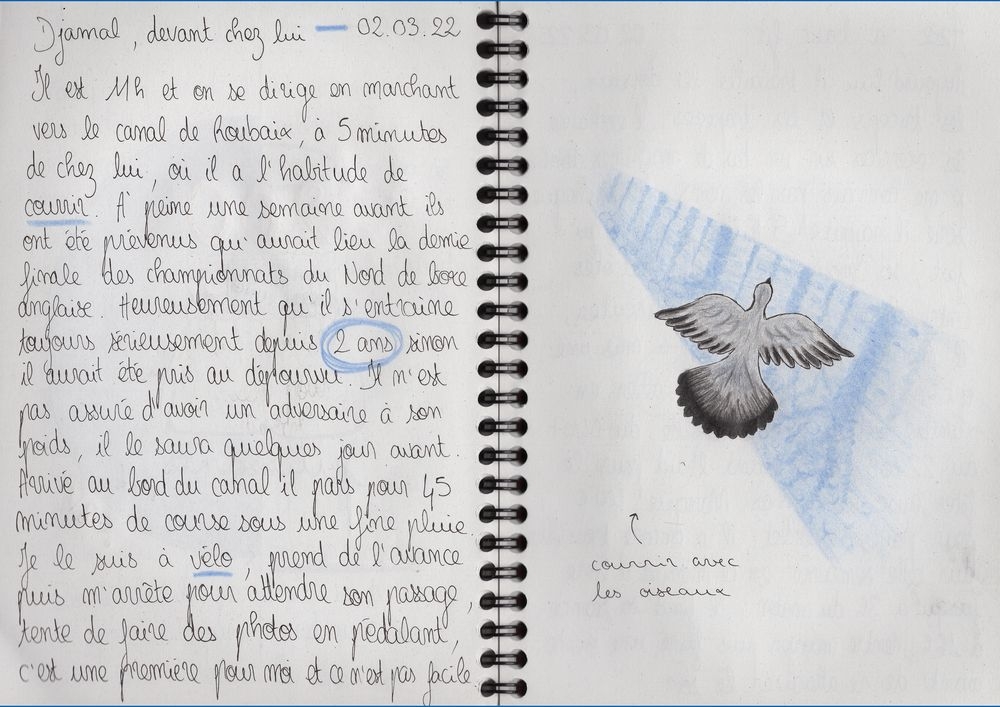 Djamal, devant chez lui — 02.03.22
Il est 11h et on se dirige en marchant
vers le canal de Roubaix, à 5 minutes
de chez lui, où il a l'habitude de
courir. À peine une semaine avant ils
ont été prévenus qu'aurait lieu la demie
finale des championnats du Nord de boxe
anglaise. Heureusement qu'il s'entraîne
toujours sérieusement depuis 2 ans sinon
il aurait été pris au dépourvu. Il n'est
pas assuré d'avoir un adversaire à son
poids, il le saura quelques jour avant.
Arrivé au bord du canal il pars pour 45
minutes de course sous une fine pluie.
Je le suis à vélo, prend de l'avance
puis m'arrête pour attendre son passage,
tente de faire des photos en pédalant,
c'est une première pour moi et ce n'est pas facile.
courrir avec
les oiseaux